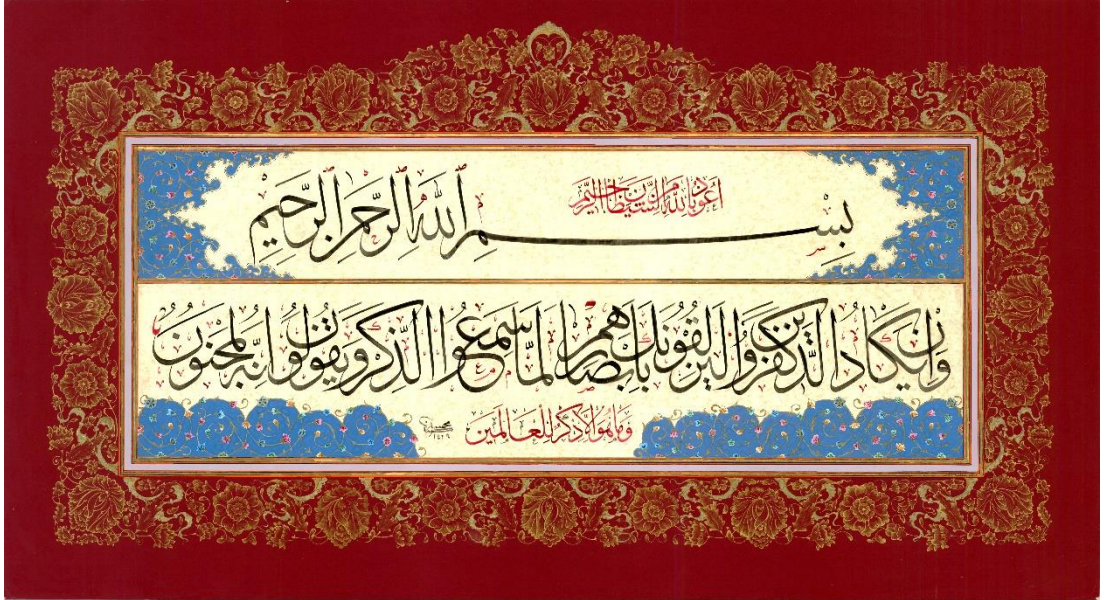 أعوذ بالله من الشيطان الرجيم
بِسْمِ اللّٰهِ الرَّحْمٰنِ الرَّحِيمِ
وَإِنْ يَكَادُ الَّذِينَ كَفَرُوا لَيُزْلِقُونَكَ بِأَبْصَارِهِمْ لَمَّا سَمِعُوا الذِّكْرَ وَيَقُولُونَ إِنَّهُ لَمَجْنُونٌ
وَمَا هُوَ إِلَّا ذِكْرٌ لِلْعَالَمِينَ
١٤٢٩